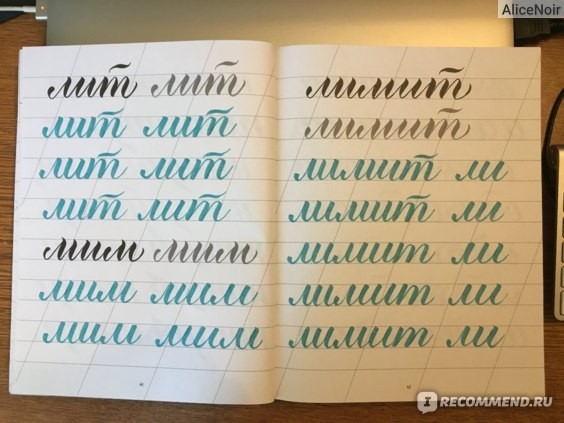 AliceNoir
лит лит
лит лит
лит лит
лит лит
мим мим
мим мим
мим мим
лимит
лимит
лимит ли
лимит ли
лимит ли
лимит ли
лимит ли
IRECOMMEND.RU